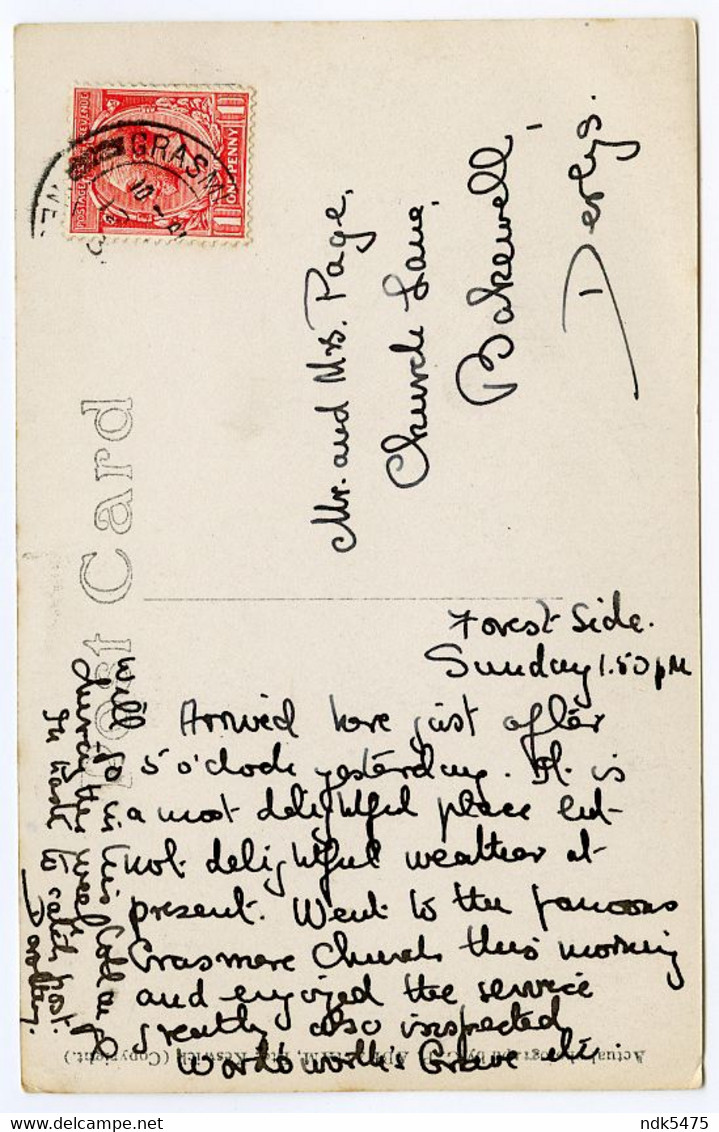 POSTAGE REVENUE
ONE PENNY
GRASM
Post Card
Mr. and Mrs. Page,
Church Lane,
Bakewell,
Derbys.
Forest Side.
Sunday 1.50 pm
Arrived here just after
5 o'clock yesterday. It is
a most delightful place but
not delightful weather at
present. Went to the famous
Grasmere Church this morning
and enjoyed the service
greatly also inspected
Wordsworth's Grave etc.
Will in this
during the week
In haste to catch post.
Actual photograph by Keswick (Copyright.)
ndk5475